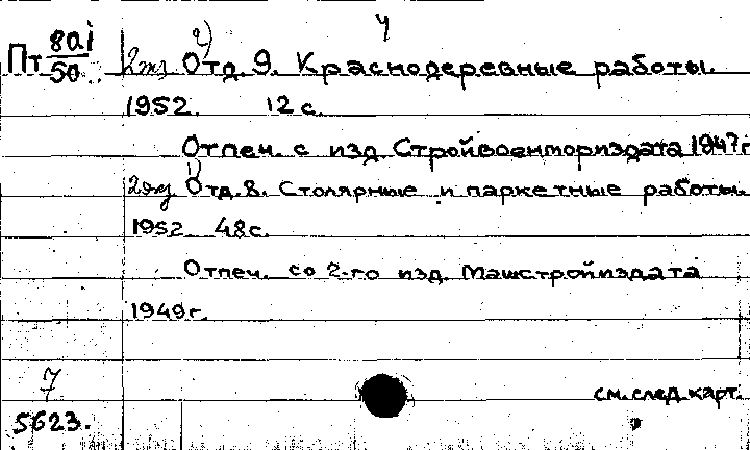 4
Пт 8ai/50 2экз. 2) Отд. 9. Краснодеревные работы.
1952. 12 с.
Отпеч. с изд. Стройвоенмориздата 1947 г
2экз 1) Отд. 8. Столярные и паркетные работы.
1952 48с.
Отпеч. со 2-го изд. Машстройиздата
1949 г.
7
см. след. карт.
5623.